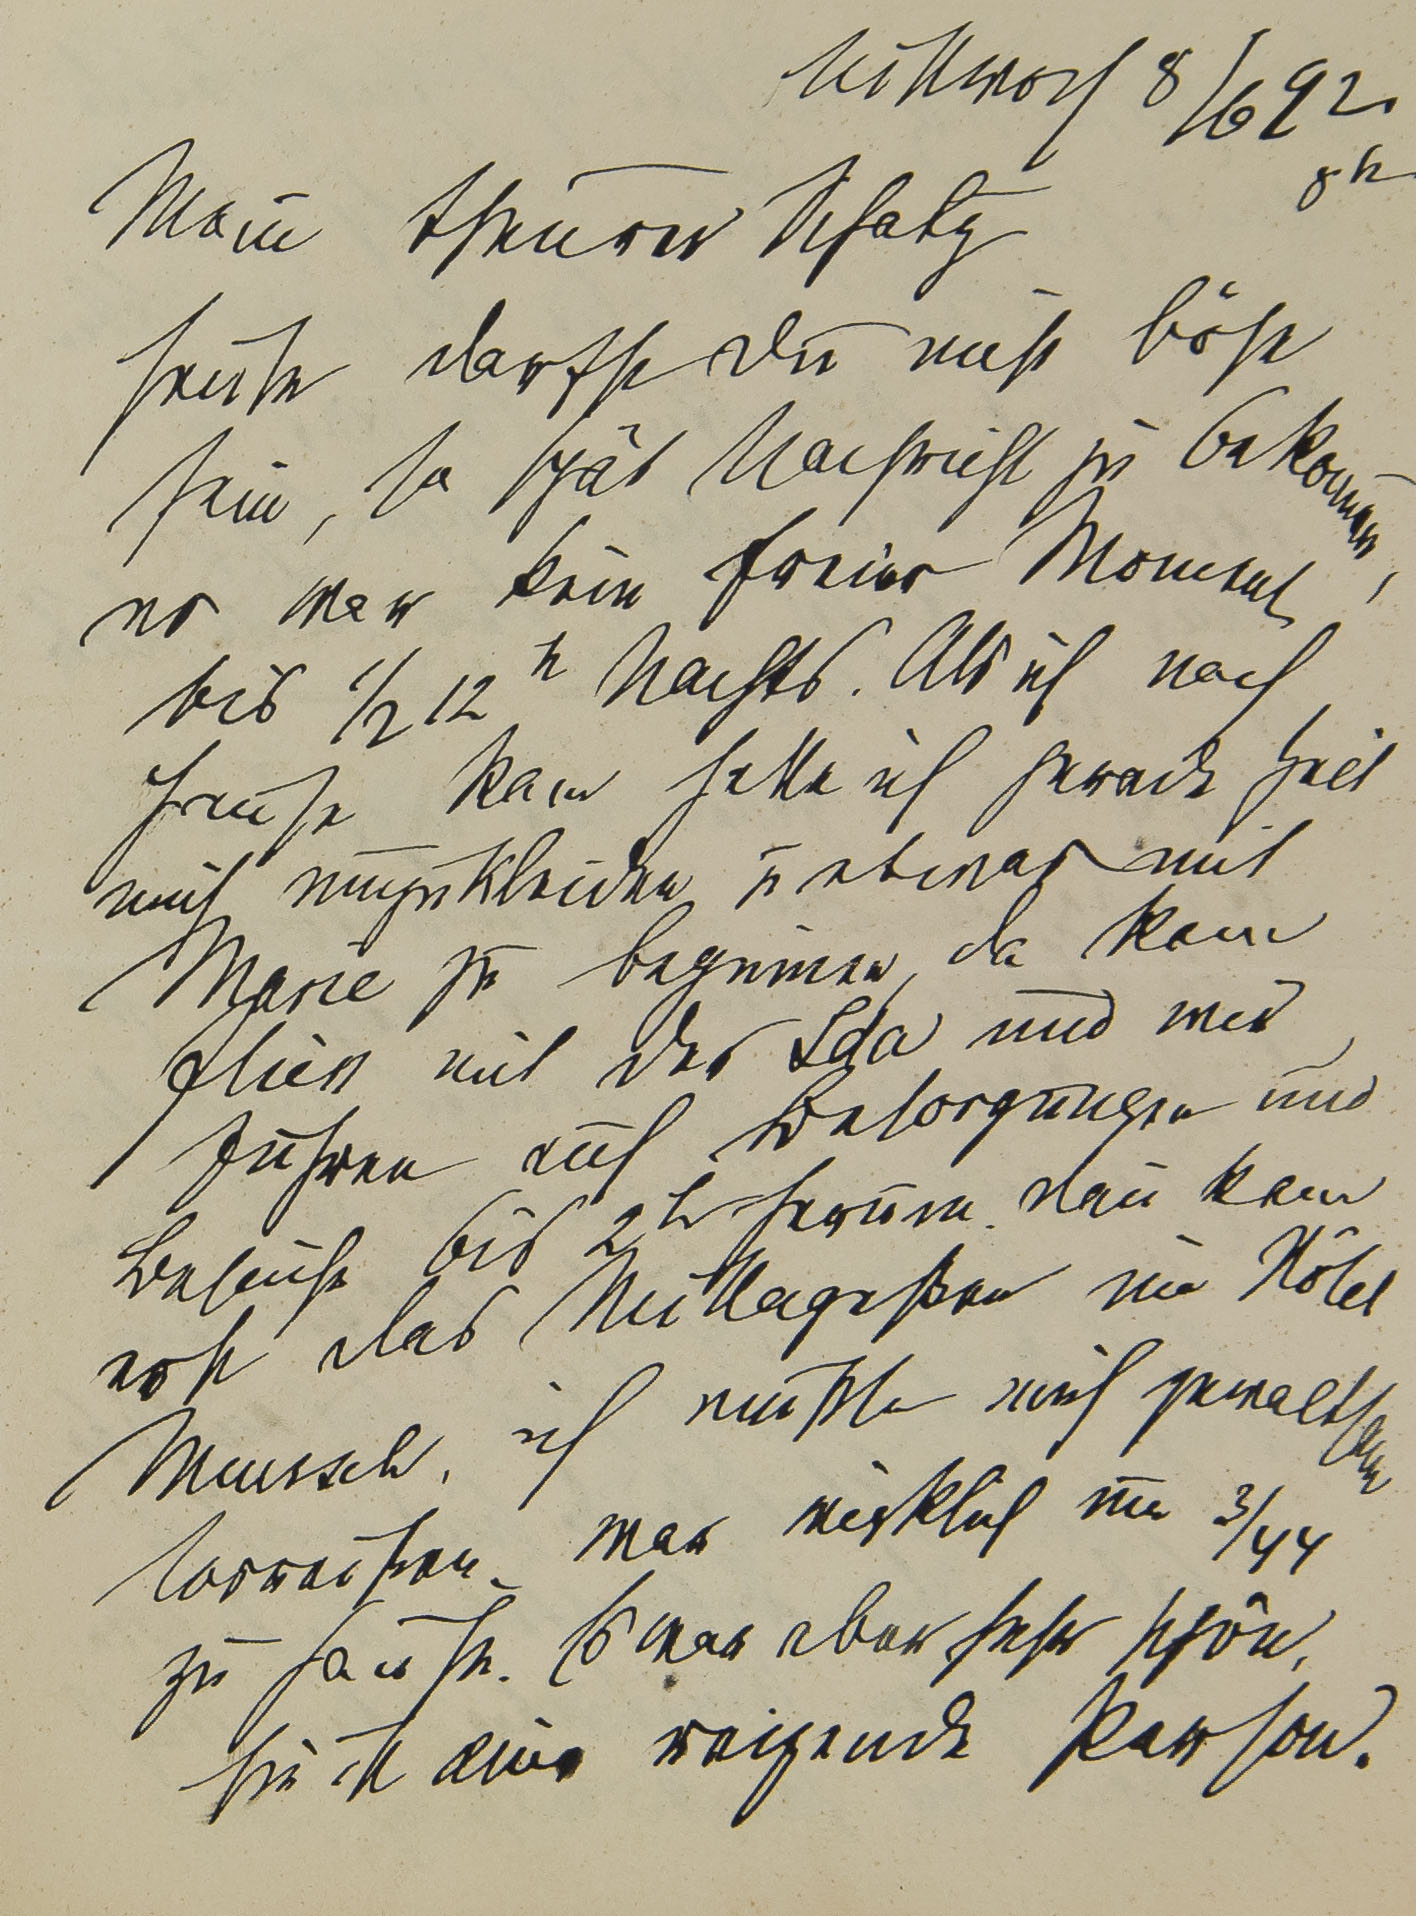 Mittwoch 8/6 92.
8h
Mein theurer Schatz
heute darfst Du nicht böse
sein, so spät Nachricht zu bekommen,
es war kein freier Moment
bis 1/2 12h Nachts. Als ich nach
Hause kam hatte ich gerade Zeit
mich umzukleiden u etwas mit
Marie zu beginnen, da kam
mit der Ida und wir
fuhren auf Besorgungen und
Besuche bis 2h herum. dan kam
erst das Mittagessen im Hôtel
Munsch, ich mußte mich gewaltsam
losreißen. war wirklich um 3/44
zu Hause. Es war aber sehr schön,
sie ist eine reizende Person.